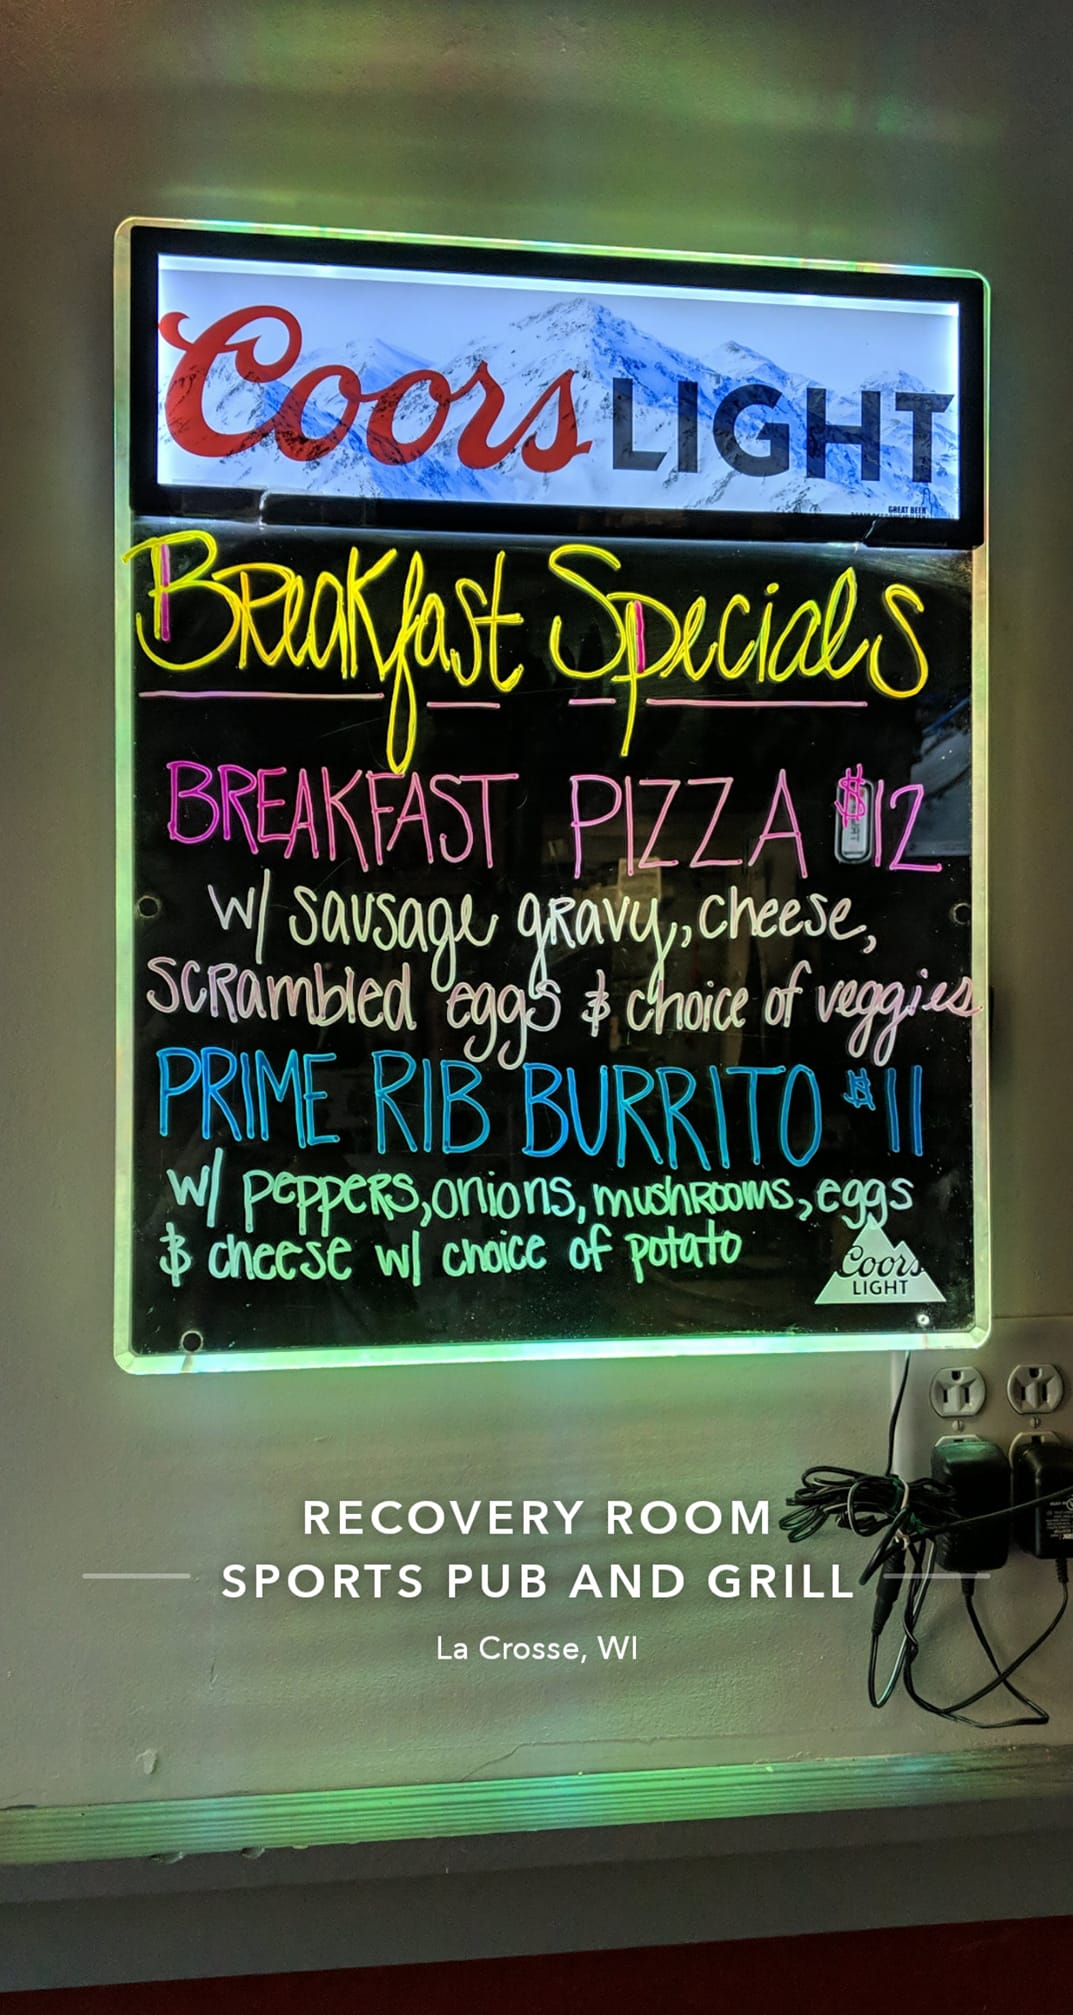 Coors LIGHT
GREAT BEER
Breakfast Specials
BREAKFAST PIZZA $12
w/ sausage gravy, cheese,
scrambled eggs & choice of veggies
PRIME RIB BURRITO $11
w/ peppers, onions, mushrooms, eggs
& cheese w/ choice of potato
Coors
LIGHT
RECOVERY ROOM
SPORTS PUB AND GRILL
La Crosse, WI